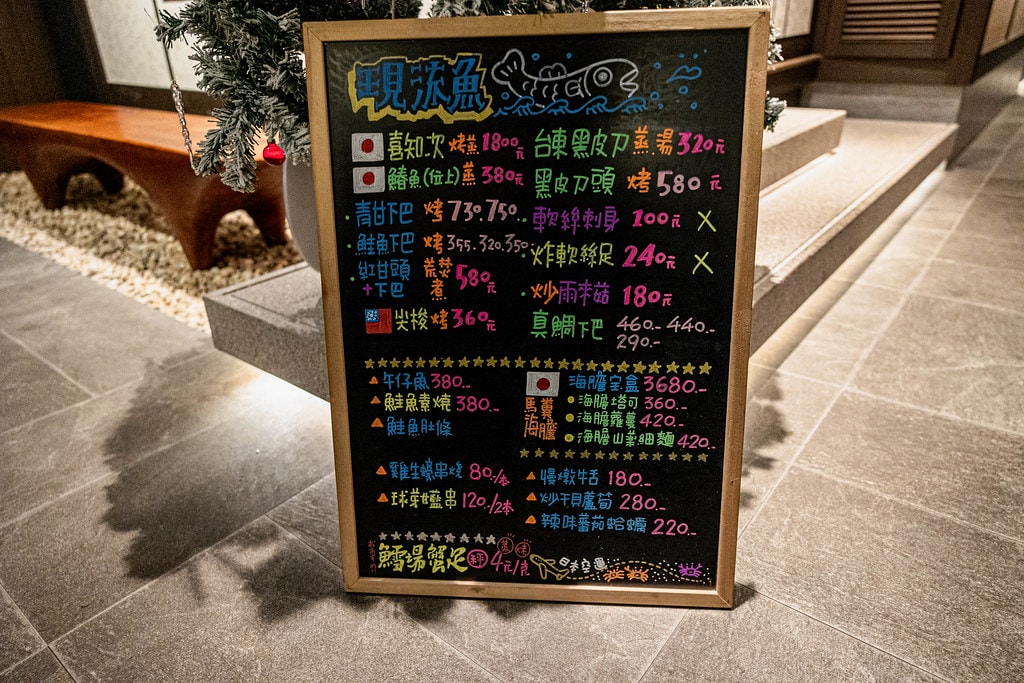 現流魚
喜知次 烤蒸 1800元
鰆魚(位上)蒸 380元
青甘下巴 烤 730.750.
鮭魚下巴 烤 355.320.350
紅甘頭+下巴 煮 580元
尖梭 烤 360元
台東黑皮刀 蒸湯 320元
黑皮刀頭 烤 580元
軟絲刺身 100元 X
炸軟絲足 240元 X
炒雨來菇 180元
真鯛下巴 460.- 440.-
290.-
午仔魚 380.-
鮭魚素燒 380.-
鮭魚肚條
馬糞海膽
海膽宝盒 3680.-
海膽塔可 360.-
海膽蘿蔓 420.-
海膽山葉細麵 420.
雞生蠔串燒 80.-/本
球芽鹽串 120.-/2本
慢燉牛舌 180.-
炒干貝蘆筍 280.-
辣味蕃茄蛤蠣 220.-
おすすめ!!
鱈場蟹足 秤 4元/克 蒸 烤
日本空運